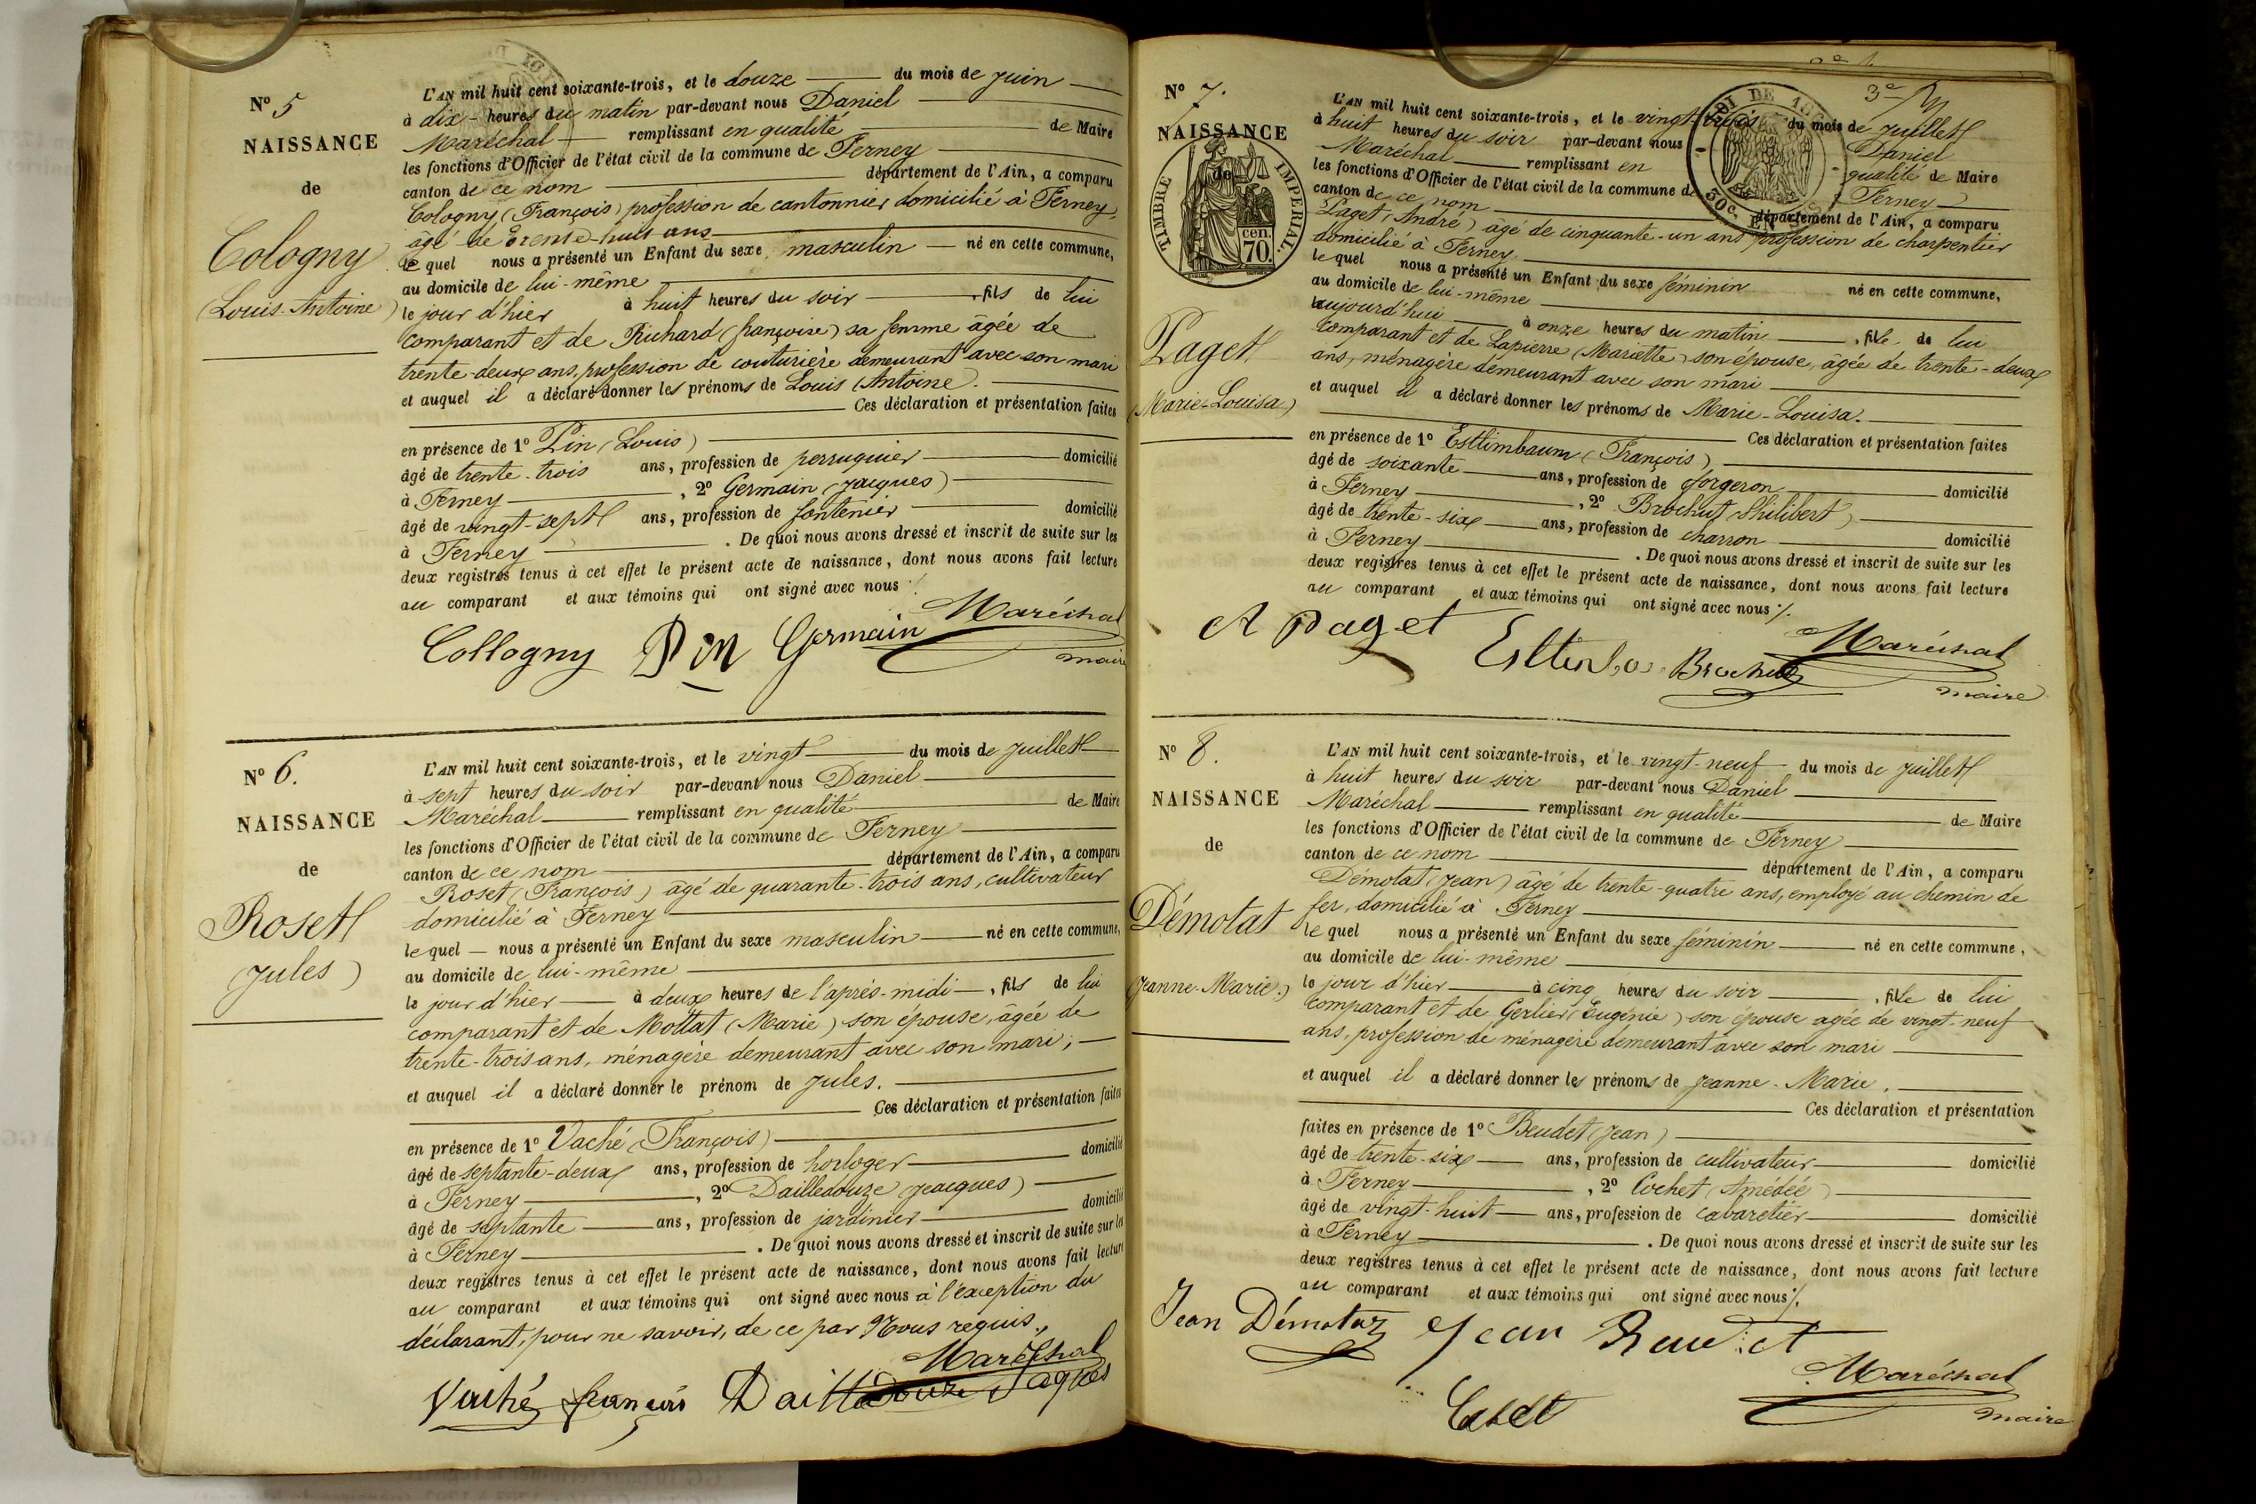 Nº 5
NAISSANCE
de
Cologny
(Louis-Antoine)
L'AN mil huit cent soixante-trois, et le douze du mois de Juin
à dix heures du matin par-devant nous Daniel
Maréchal remplissant en qualité de Maire
les fonctions d'Officier de l'état civil de la commune de Ferney
canton de ce nom département de l'Ain, a comparu
Cologny (François) profession de cantonnier domicilié à Ferney,
âgé de trente-huit ans
lequel nous a présenté un Enfant du sexe masculin né en cette commune,
au domicile de lui-même
le jour d'hier à huit heures du soir, fils de lui
comparant et de Richard (françoise) sa femme âgée de
trente-deux ans, profession de couturière demeurant avec son mari
et auquel il a déclaré donner les prénoms de Louis (Antoine).
Ces déclaration et présentation faites
en présence de 1º Pin (Louis)
âgé de trente-trois ans, profession de perruquier domicilié
à Ferney, 2º Germain (Jacques)
âgé de vingt-sept ans, profession de fontenier domicilié
à Ferney. De quoi nous avons dressé et inscrit de suite sur les
deux registres tenus à cet effet le présent acte de naissance, dont nous avons fait lecture
au comparant et aux témoins qui ont signé avec nous ./.
Collogny Pin Germain Maréchal
maire
Nº 6.
NAISSANCE
de
Roset
(Jules)
L'AN mil huit cent soixante-trois, et le vingt du mois de Juillet
à sept heures du soir par-devant nous Daniel
Maréchal remplissant en qualité de Maire
les fonctions d'Officier de l'état civil de la commune de Ferney
canton de ce nom département de l'Ain, a comparu
Roset (François) âgé de quarante-trois ans, cultivateur
domicilié à Ferney
lequel nous a présenté un Enfant du sexe masculin né en cette commune,
au domicile de lui-même
le jour d'hier à deux heures de l'après-midi, fils de lui
comparant et de Mottat (Marie) son épouse, âgée de
trente-trois ans, ménagère demeurant avec son mari;
et auquel il a déclaré donner le prénom de Jules.
Ces déclaration et présentation faites
en présence de 1º Vaché (François)
âgé de septante-deux ans, profession de horloger domicilié
à Ferney, 2º Dailledouze (Jacques)
âgé de septante ans, profession de jardinier domicilié
à Ferney. De quoi nous avons dressé et inscrit de suite sur les
deux registres tenus à cet effet le présent acte de naissance, dont nous avons fait lecture
au comparant et aux témoins qui ont signé avec nous à l'exception du
déclarant, pour ne savoir, de ce par Nous requis.,
Maréchal
Vaché françois Dailledouze Jaques
Nº 7.
NAISSANCE
de
TIMBRE IMPERIAL.
cen.
70.
Paget
(Marie-Louisa)
3e
L'AN mil huit cent soixante-trois, et le vingt-trois du mois de Juillet
à huit heures du soir par-devant nous Daniel
Maréchal remplissant en qualité de Maire
les fonctions d'Officier de l'état civil de la commune de Ferney
canton de ce nom département de l'Ain, a comparu
Paget (André) âgé de cinquante-un ans profession de charpentier
domicilié à Ferney
lequel nous a présenté un Enfant du sexe féminin né en cette commune,
au domicile de lui-même
aujourd'hui à onze heures du matin, fille de lui
comparant et de Lapierre (Mariette) son épouse, âgée de trente-deux
ans, ménagère demeurant avec son mari
et auquel il a déclaré donner les prénoms de Marie-Louisa.
Ces déclaration et présentation faites
en présence de 1º Estlimbaum (François)
âgé de soixante ans, profession de forgeron domicilié
à Ferney, 2º Brochut (Philibert)
âgé de trente-six ans, profession de charron domicilié
à Ferney. De quoi nous avons dressé et inscrit de suite sur les
deux registres tenus à cet effet le présent acte de naissance, dont nous avons fait lecture
au comparant et aux témoins qui ont signé avec nous ./.
A Paget Brochut Maréchal
maire
Nº 8.
NAISSANCE
de
Démotat
(Jeanne-Marie.)
L'AN mil huit cent soixante-trois, et le vingt-neuf du mois de Juillet
à huit heures du soir par-devant nous Daniel
Maréchal remplissant en qualité de Maire
les fonctions d'Officier de l'état civil de la commune de Ferney
canton de ce nom département de l'Ain, a comparu
Démotat (Jean) âgé de trente-quatre ans, employé au chemin de
fer, domicilié à Ferney
lequel nous a présenté un Enfant du sexe féminin né en cette commune,
au domicile de lui-même
le jour d'hier à cinq heures du soir, fille de lui
comparant et de Gerlier (Eugénie) son épouse agée de vingt-neuf
ans, profession de ménagère demeurant avec son mari
et auquel il a déclaré donner les prénoms de Jeanne-Marie.
Ces déclaration et présentation
faites en présence de 1º Beudet (Jean)
âgé de trente-six ans, profession de cultivateur domicilié
à Ferney, 2º Cochet (Amédée)
âgé de vingt-huit ans, profession de cabaretier domicilié
à Ferney. De quoi nous avons dressé et inscrit de suite sur les
deux registres tenus à cet effet le présent acte de naissance, dont nous avons fait lecture
au comparant et aux témoins qui ont signé avec nous ./.
Jean Démotaz Jean
Maréchal
maire